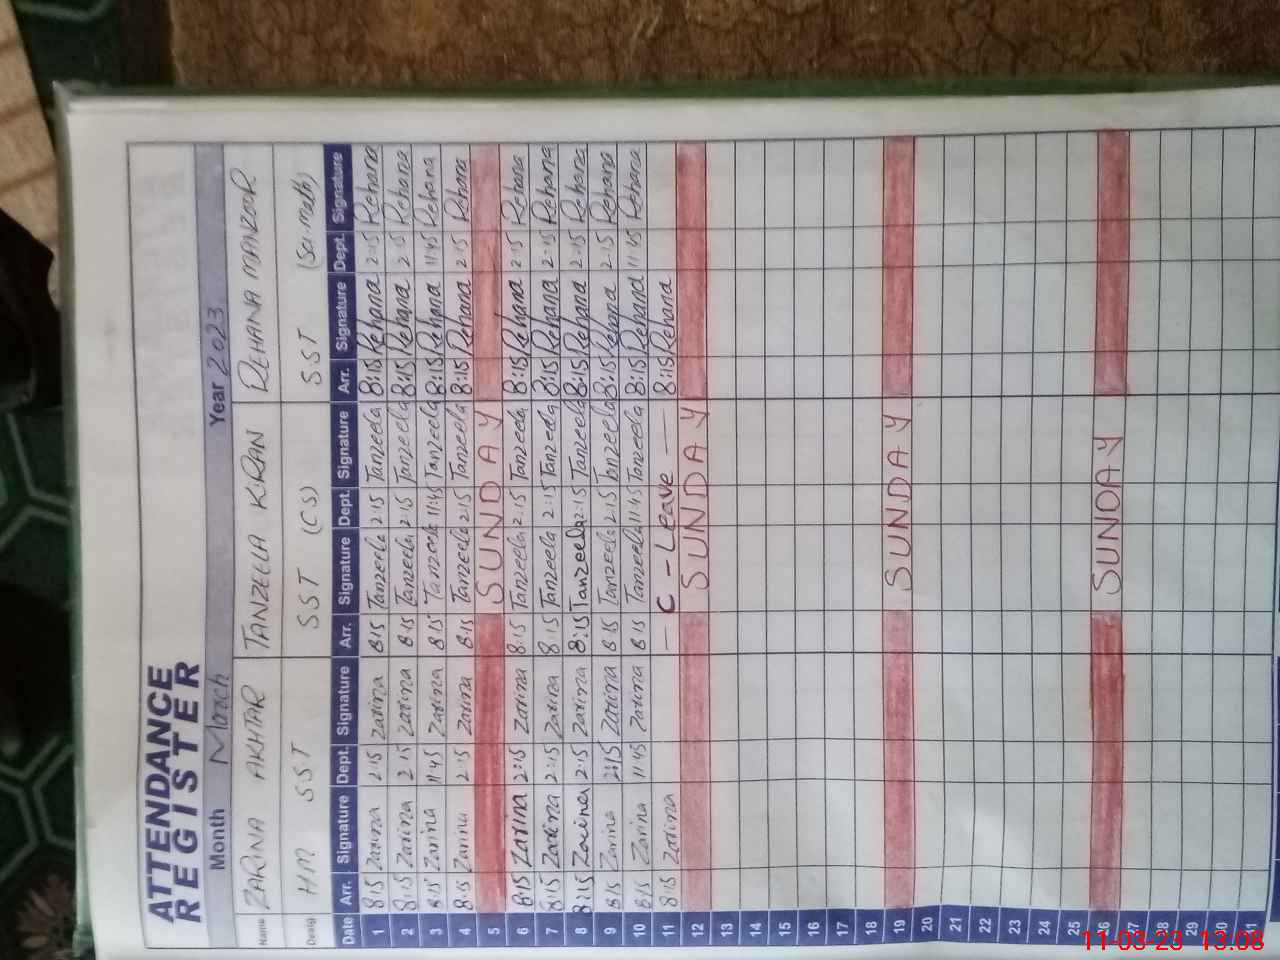 ATTENDANCE
REGISTER
Month March Year 2023
Name ZARINA AKHTAR TANZEELA KIRAN REHANA MANZOOR
Desig HM SST SST (CS) SST (Sci math)
Date Arr. Signature Dept. Signature Arr. Signature Dept. Signature Arr. Signature Dept. Signature
1 8:15 Zarina 2:15 Zarina 8:15 Tanzeela 2:15 Tanzeela 8:15 Rehana 2:15 Rehana
2 8:15 Zarina 2:15 Zarina 8:15 Tanzeela 2:15 Tanzeela 8:15 Rehana 2:15 Rehana
3 8:15 Zarina 11:45 Zarina 8:15 Tanzeela 11:45 Tanzeela 8:15 Rehana 11:45 Rehana
4 8:15 Zarina 2:15 Zarina 8:15 Tanzeela 2:15 Tanzeela 8:15 Rehana 2:15 Rehana
5 SUNDAY
6 8:15 Zarina 2:15 Zarina 8:15 Tanzeela 2:15 Tanzeela 8:15 Rehana 2:15 Rehana
7 8:15 Zarina 2:15 Zarina 8:15 Tanzeela 2:15 Tanzeela 8:15 Rehana 2:15 Rehana
8 8:15 Zarina 2:15 Zarina 8:15 Tanzeela 2:15 Tanzeela 8:15 Rehana 2:15 Rehana
9 8:15 Zarina 2:15 Zarina 8:15 Tanzeela 2:15 Tanzeela 8:15 Rehana 2:15 Rehana
10 8:15 Zarina 11:45 Zarina 8:15 Tanzeela 11:45 Tanzeela 8:15 Rehana 11:45 Rehana
11 8:15 Zarina — C - Leave — 8:15 Rehana
12 SUNDAY
13
14
15
16
17
18
19 SUNDAY
20
21
22
23
24
25
26 SUNDAY
27
28
29
30
31
11-03-23 13:08